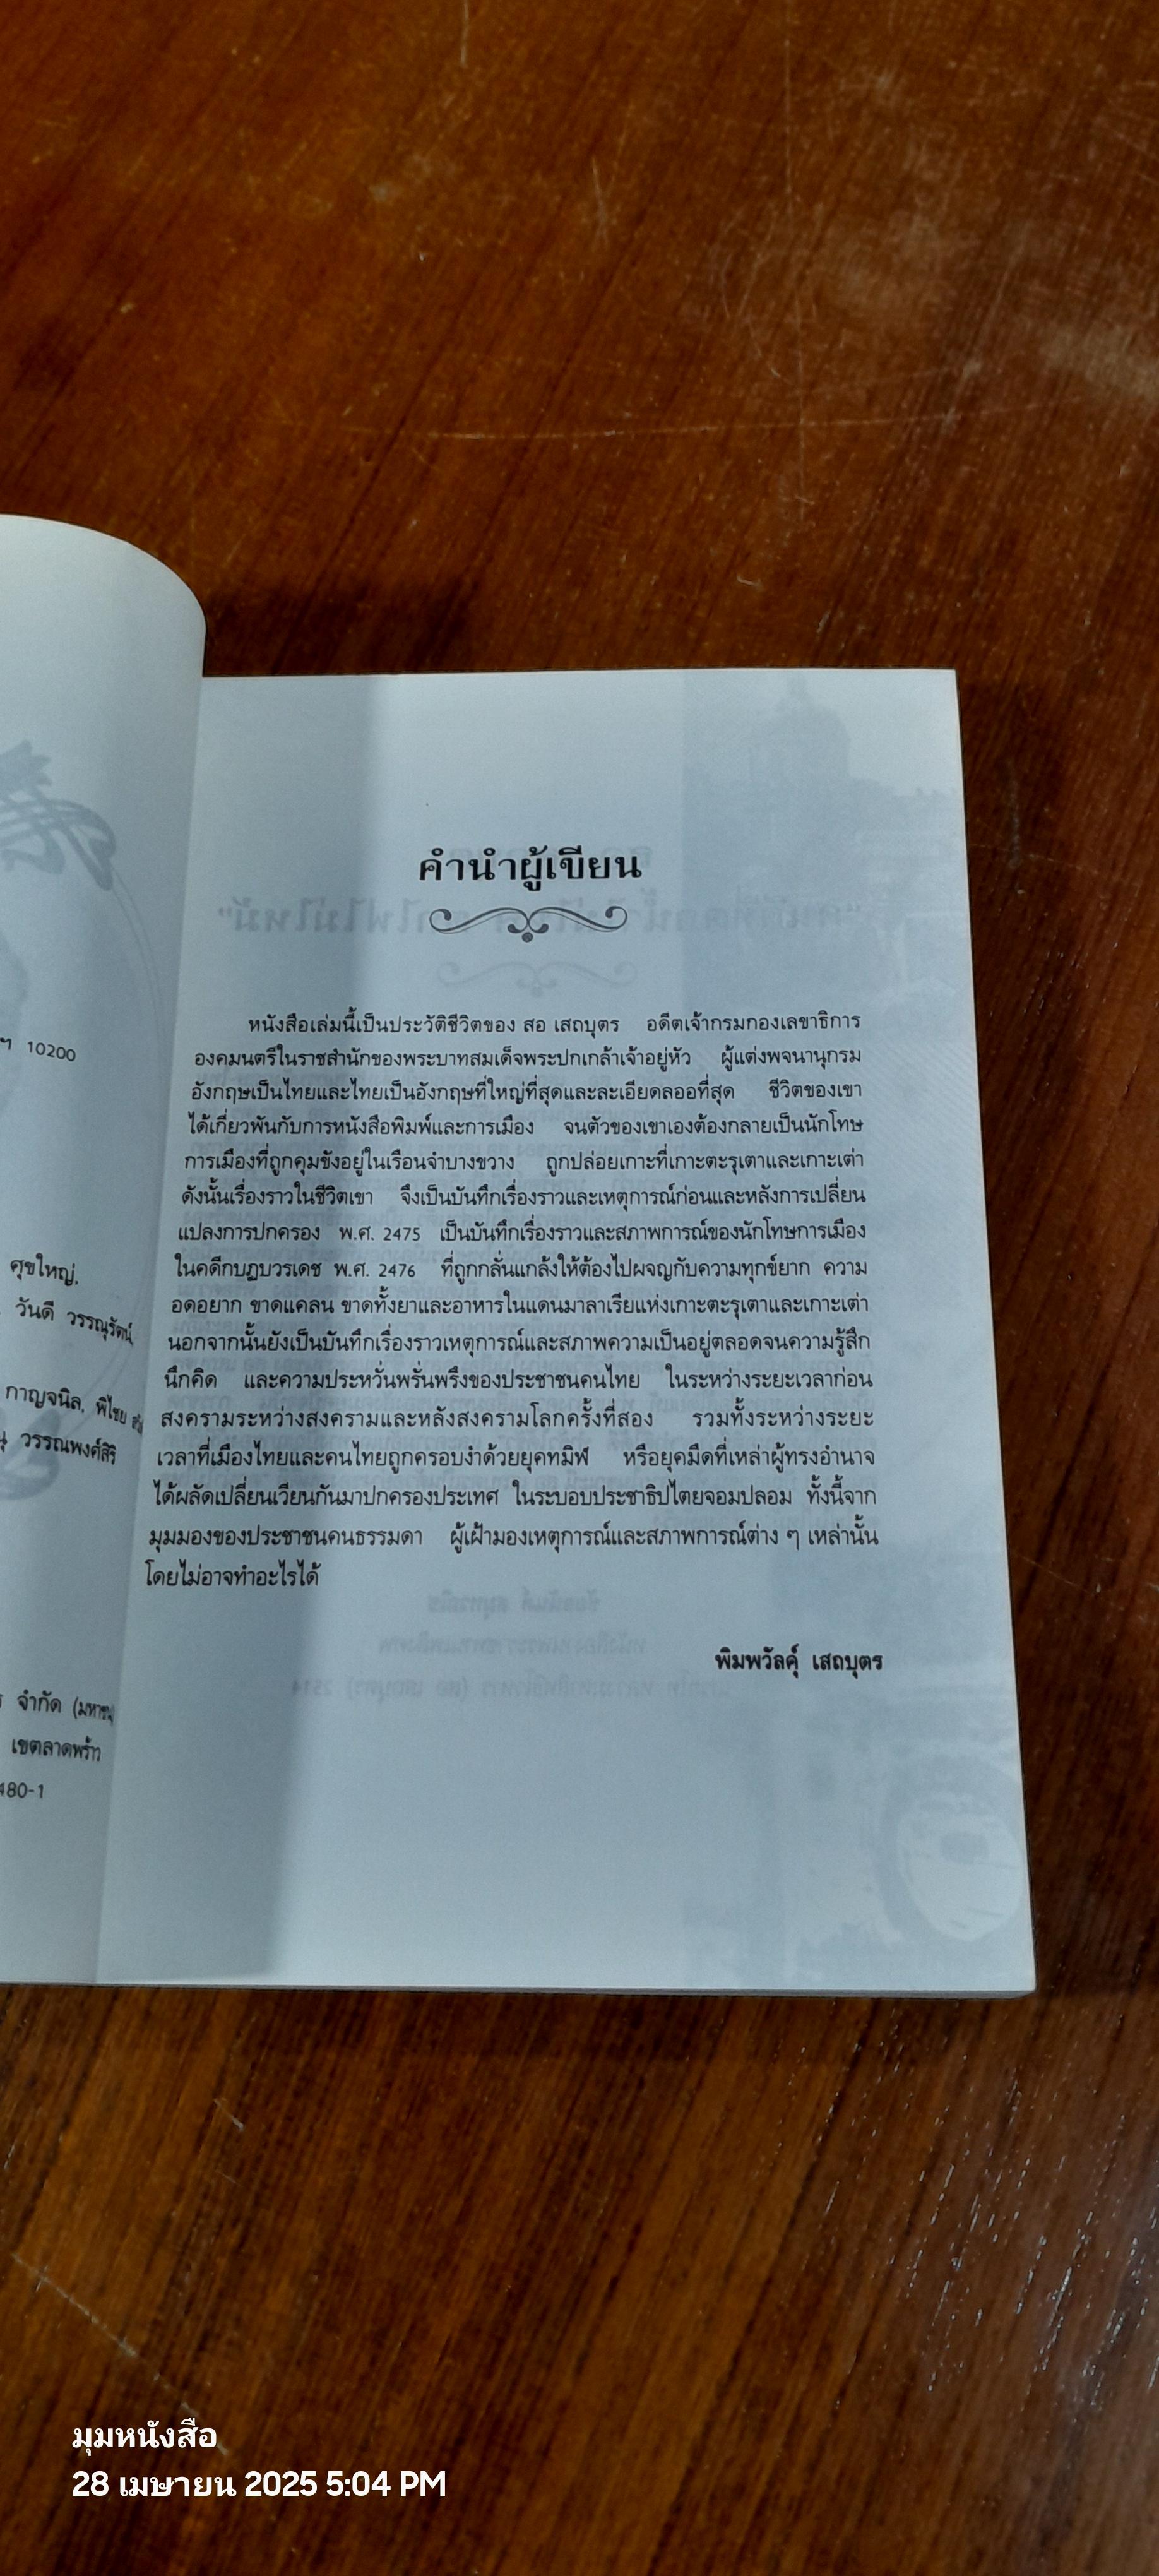 ฯ 10200
ศุขใหญ่,
วันดี วรรณุรัตน์
กาญจนิล, พิไชย
วรรณพงศ์สิริ
จำกัด (มหาชน)
เขตลาดพร้าว
480-1
คำนำผู้เขียน
หนังสือเล่มนี้เป็นประวัติชีวิตของ สอ เสถบุตร อดีตเจ้ากรมกองเลขาธิการ
องคมนตรีในราชสำนักของพระบาทสมเด็จพระปกเกล้าเจ้าอยู่หัว ผู้แต่งพจนานุกรม
อังกฤษเป็นไทยและไทยเป็นอังกฤษที่ใหญ่ที่สุดและละเอียดลออที่สุด ชีวิตของเขา
ได้เกี่ยวพันกับการหนังสือพิมพ์และการเมือง จนตัวของเขาเองต้องกลายเป็นนักโทษ
การเมืองที่ถูกคุมขังอยู่ในเรือนจำบางขวาง ถูกปล่อยเกาะที่เกาะตะรุเตาและเกาะเต่า
ดังนั้นเรื่องราวในชีวิตเขา จึงเป็นบันทึกเรื่องราวและเหตุการณ์ก่อนและหลังการเปลี่ยน
แปลงการปกครอง พ.ศ. 2475 เป็นบันทึกเรื่องราวและสภาพการณ์ของนักโทษการเมือง
ในคดีกบฏบวรเดช พ.ศ. 2476 ที่ถูกกลั่นแกล้งให้ต้องไปผจญกับความทุกข์ยาก ความ
อดอยาก ขาดแคลน ขาดทั้งยาและอาหารในแดนมาลาเรียแห่งเกาะตะรุเตาและเกาะเต่า
นอกจากนั้นยังเป็นบันทึกเรื่องราวเหตุการณ์และสภาพความเป็นอยู่ตลอดจนความรู้สึก
นึกคิด และความประหวั่นพรั่นพรึงของประชาชนคนไทย ในระหว่างระยะเวลาก่อน
สงครามระหว่างสงครามและหลังสงครามโลกครั้งที่สอง รวมทั้งระหว่างระยะ
เวลาที่เมืองไทยและคนไทยถูกครอบงำด้วยยุคทมิฬ หรือยุคมืดที่เหล่าผู้ทรงอำนาจ
ได้ผลัดเปลี่ยนเวียนกันมาปกครองประเทศ ในระบอบประชาธิปไตยจอมปลอม ทั้งนี้จาก
มุมมองของประชาชนคนธรรมดา ผู้เฝ้ามองเหตุการณ์และสภาพการณ์ต่าง ๆ เหล่านั้น
โดยไม่อาจทำอะไรได้
พิมพวัลคุ์ เสถบุตร
มุมหนังสือ
28 เมษายน 2025 5:04 PM